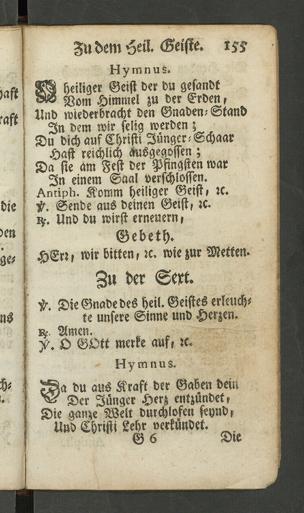 Zu dem Heil. Geiste. 155
Hymnus.
O heiliger Geist der du gesandt
Vom Himmel zu der Erden,
Und wiederbracht den Gnaden-Stand
In dem wir selig werden;
Du dich auf Christi Jünger-Schaar
Hast reichlich ausgegossen;
Da sie am Fest der Pfingsten war
In einem Saal verschlossen.
Antiph. Komm heiliger Geist, ꝛc.
℣. Sende aus deinen Geist, ꝛc.
℟. Und du wirst erneuern,
Gebeth.
HErr, wir bitten, ꝛc. wie zur Metten.
Zu der Sext.
℣. Die Gnade des heil. Geistes erleuch-
te unsere Sinne und Herzen.
℟. Amen.
℣. O GOtt merke auf, ꝛc.
Hymnus.
Da du aus Kraft der Gaben dein
Der Jünger Herz entzündet,
Die ganze Welt durchlofen seynd,
Und Christi Lehr verkündet.
G 6 Die
haft
raft
die
den
ge-
ns
ch-